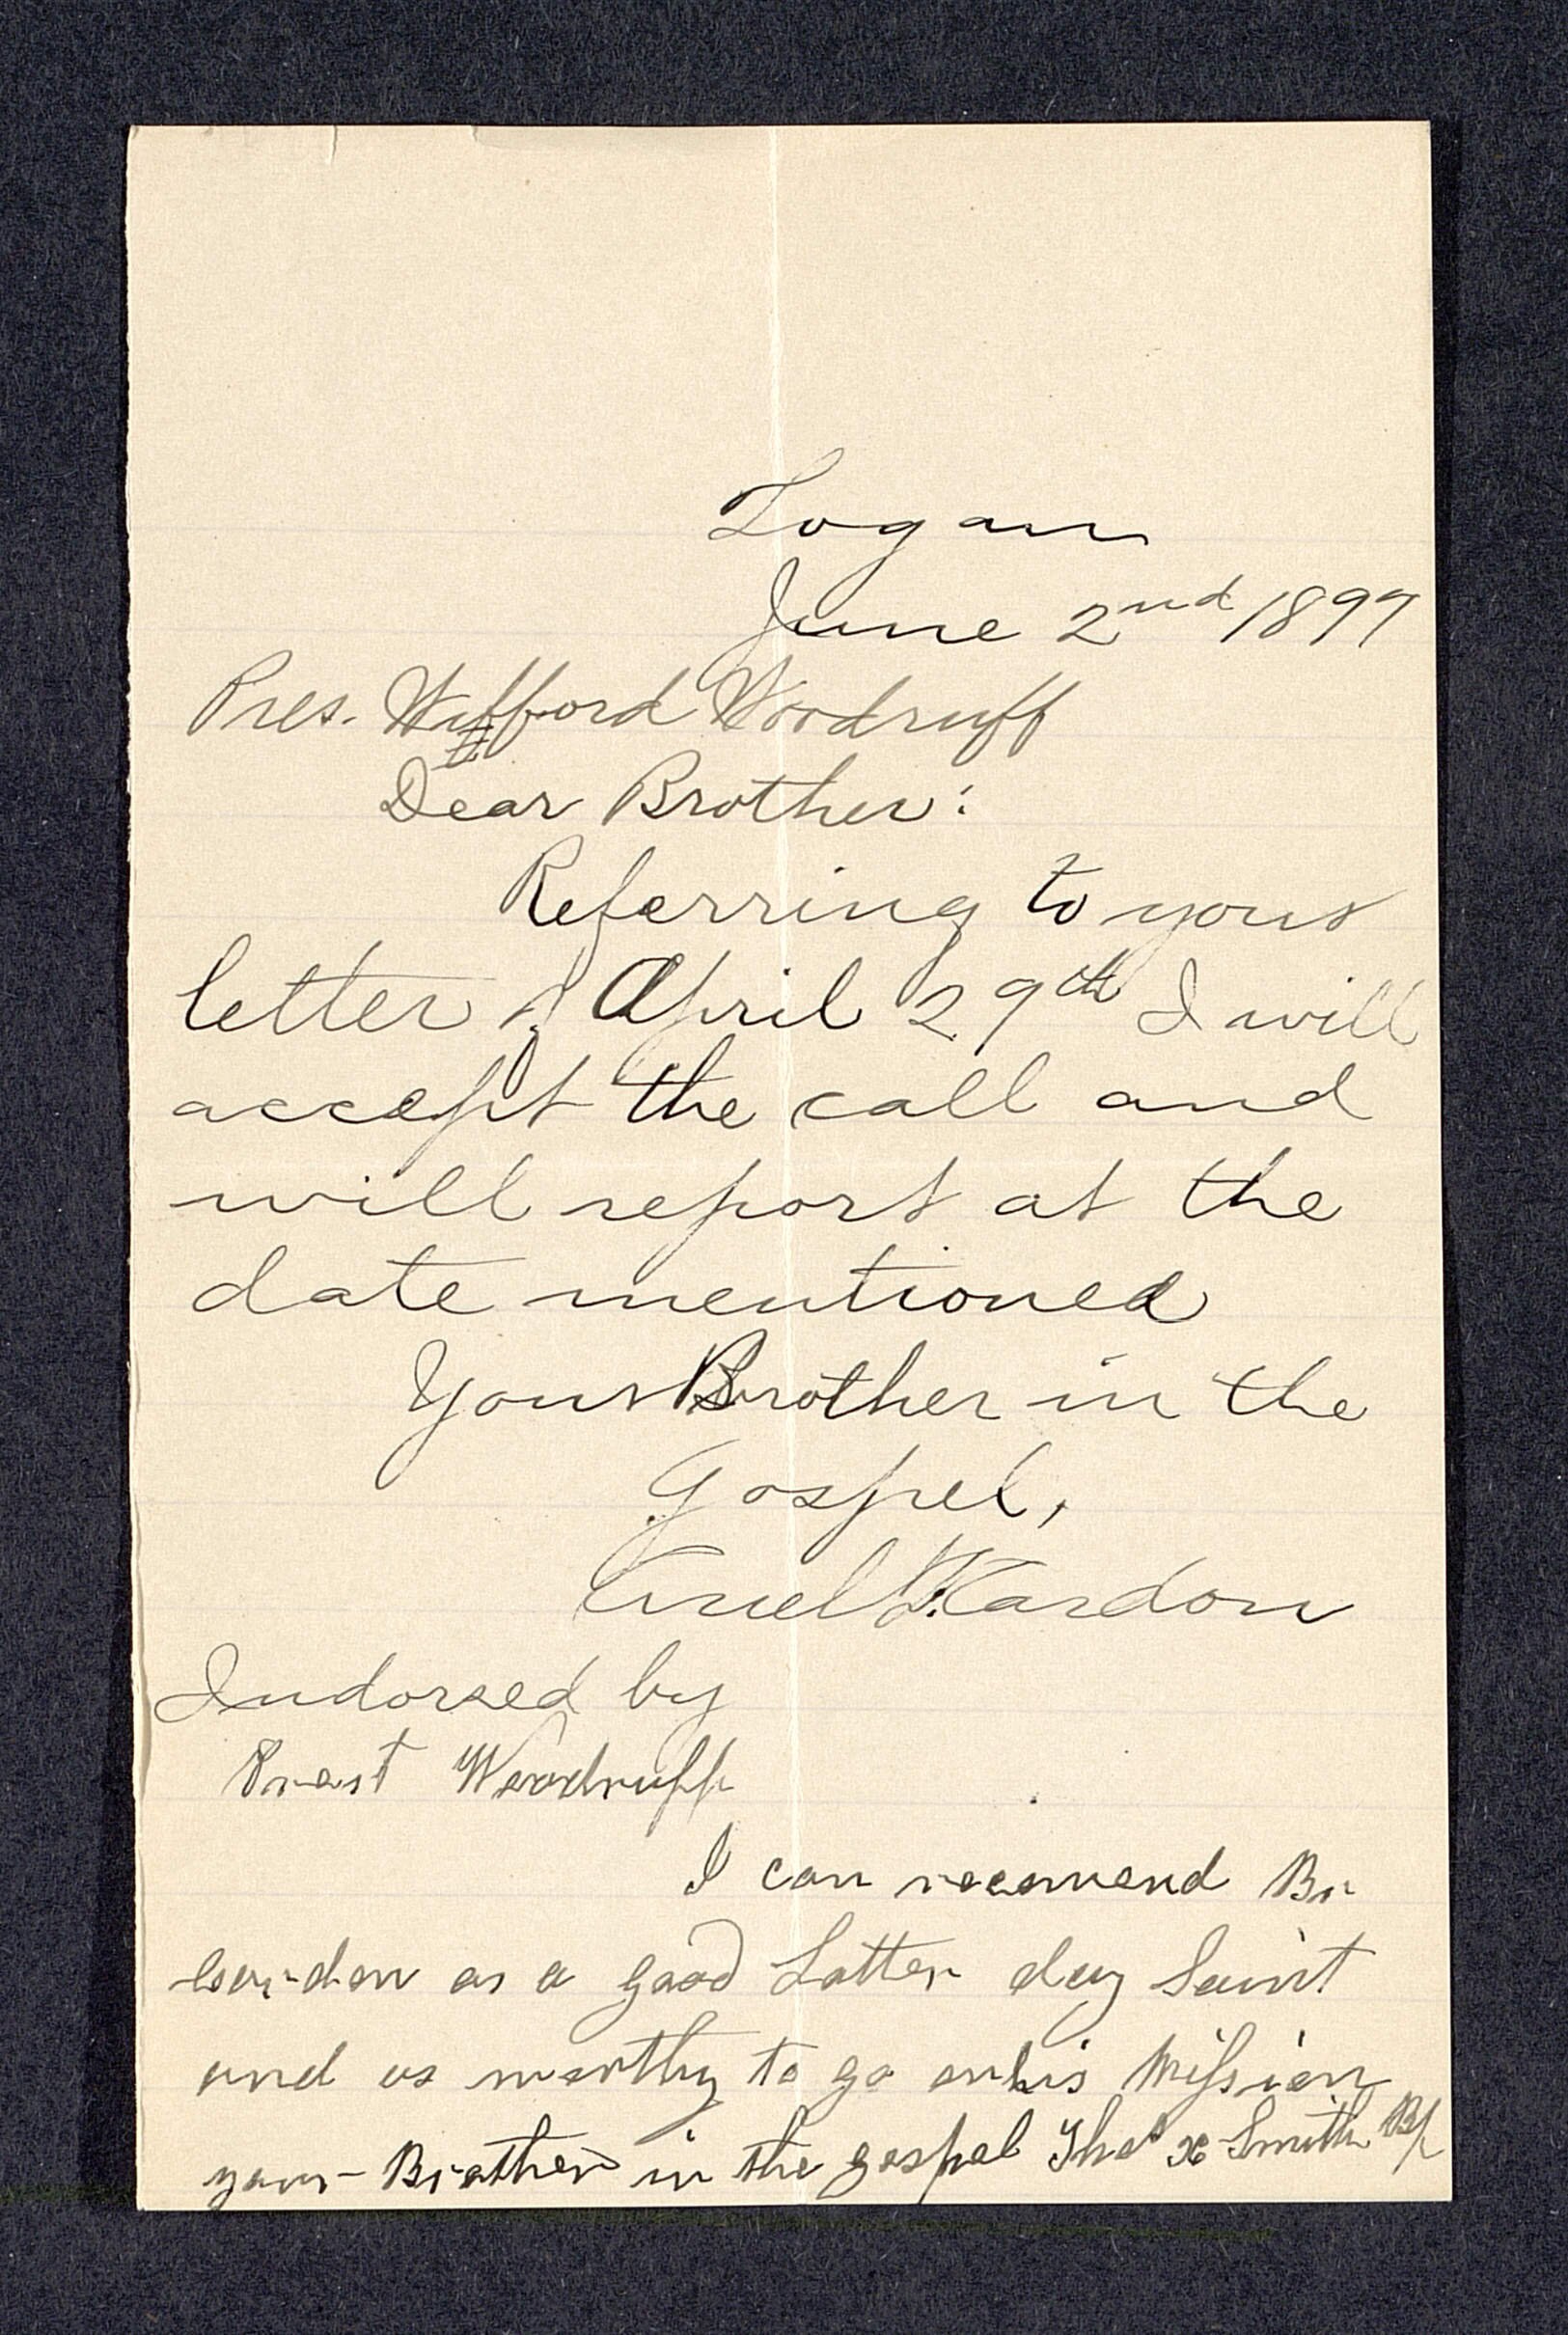 Logan
June 2nd 1897
Pres. Wilford Woodruff
Dear Brother:
Referring to your
letter of April 29th I will
accept the call and
will report at the
date mentioned
Your Brother in the
Gospel,
Ariel F. Cardon
Indorsed by
Prast Woodruff
I can recomend Br
Cardon as a good Latter day Saint
and as worthy to go on his Mission
your Brother in the gospel Thos X Smith Bp